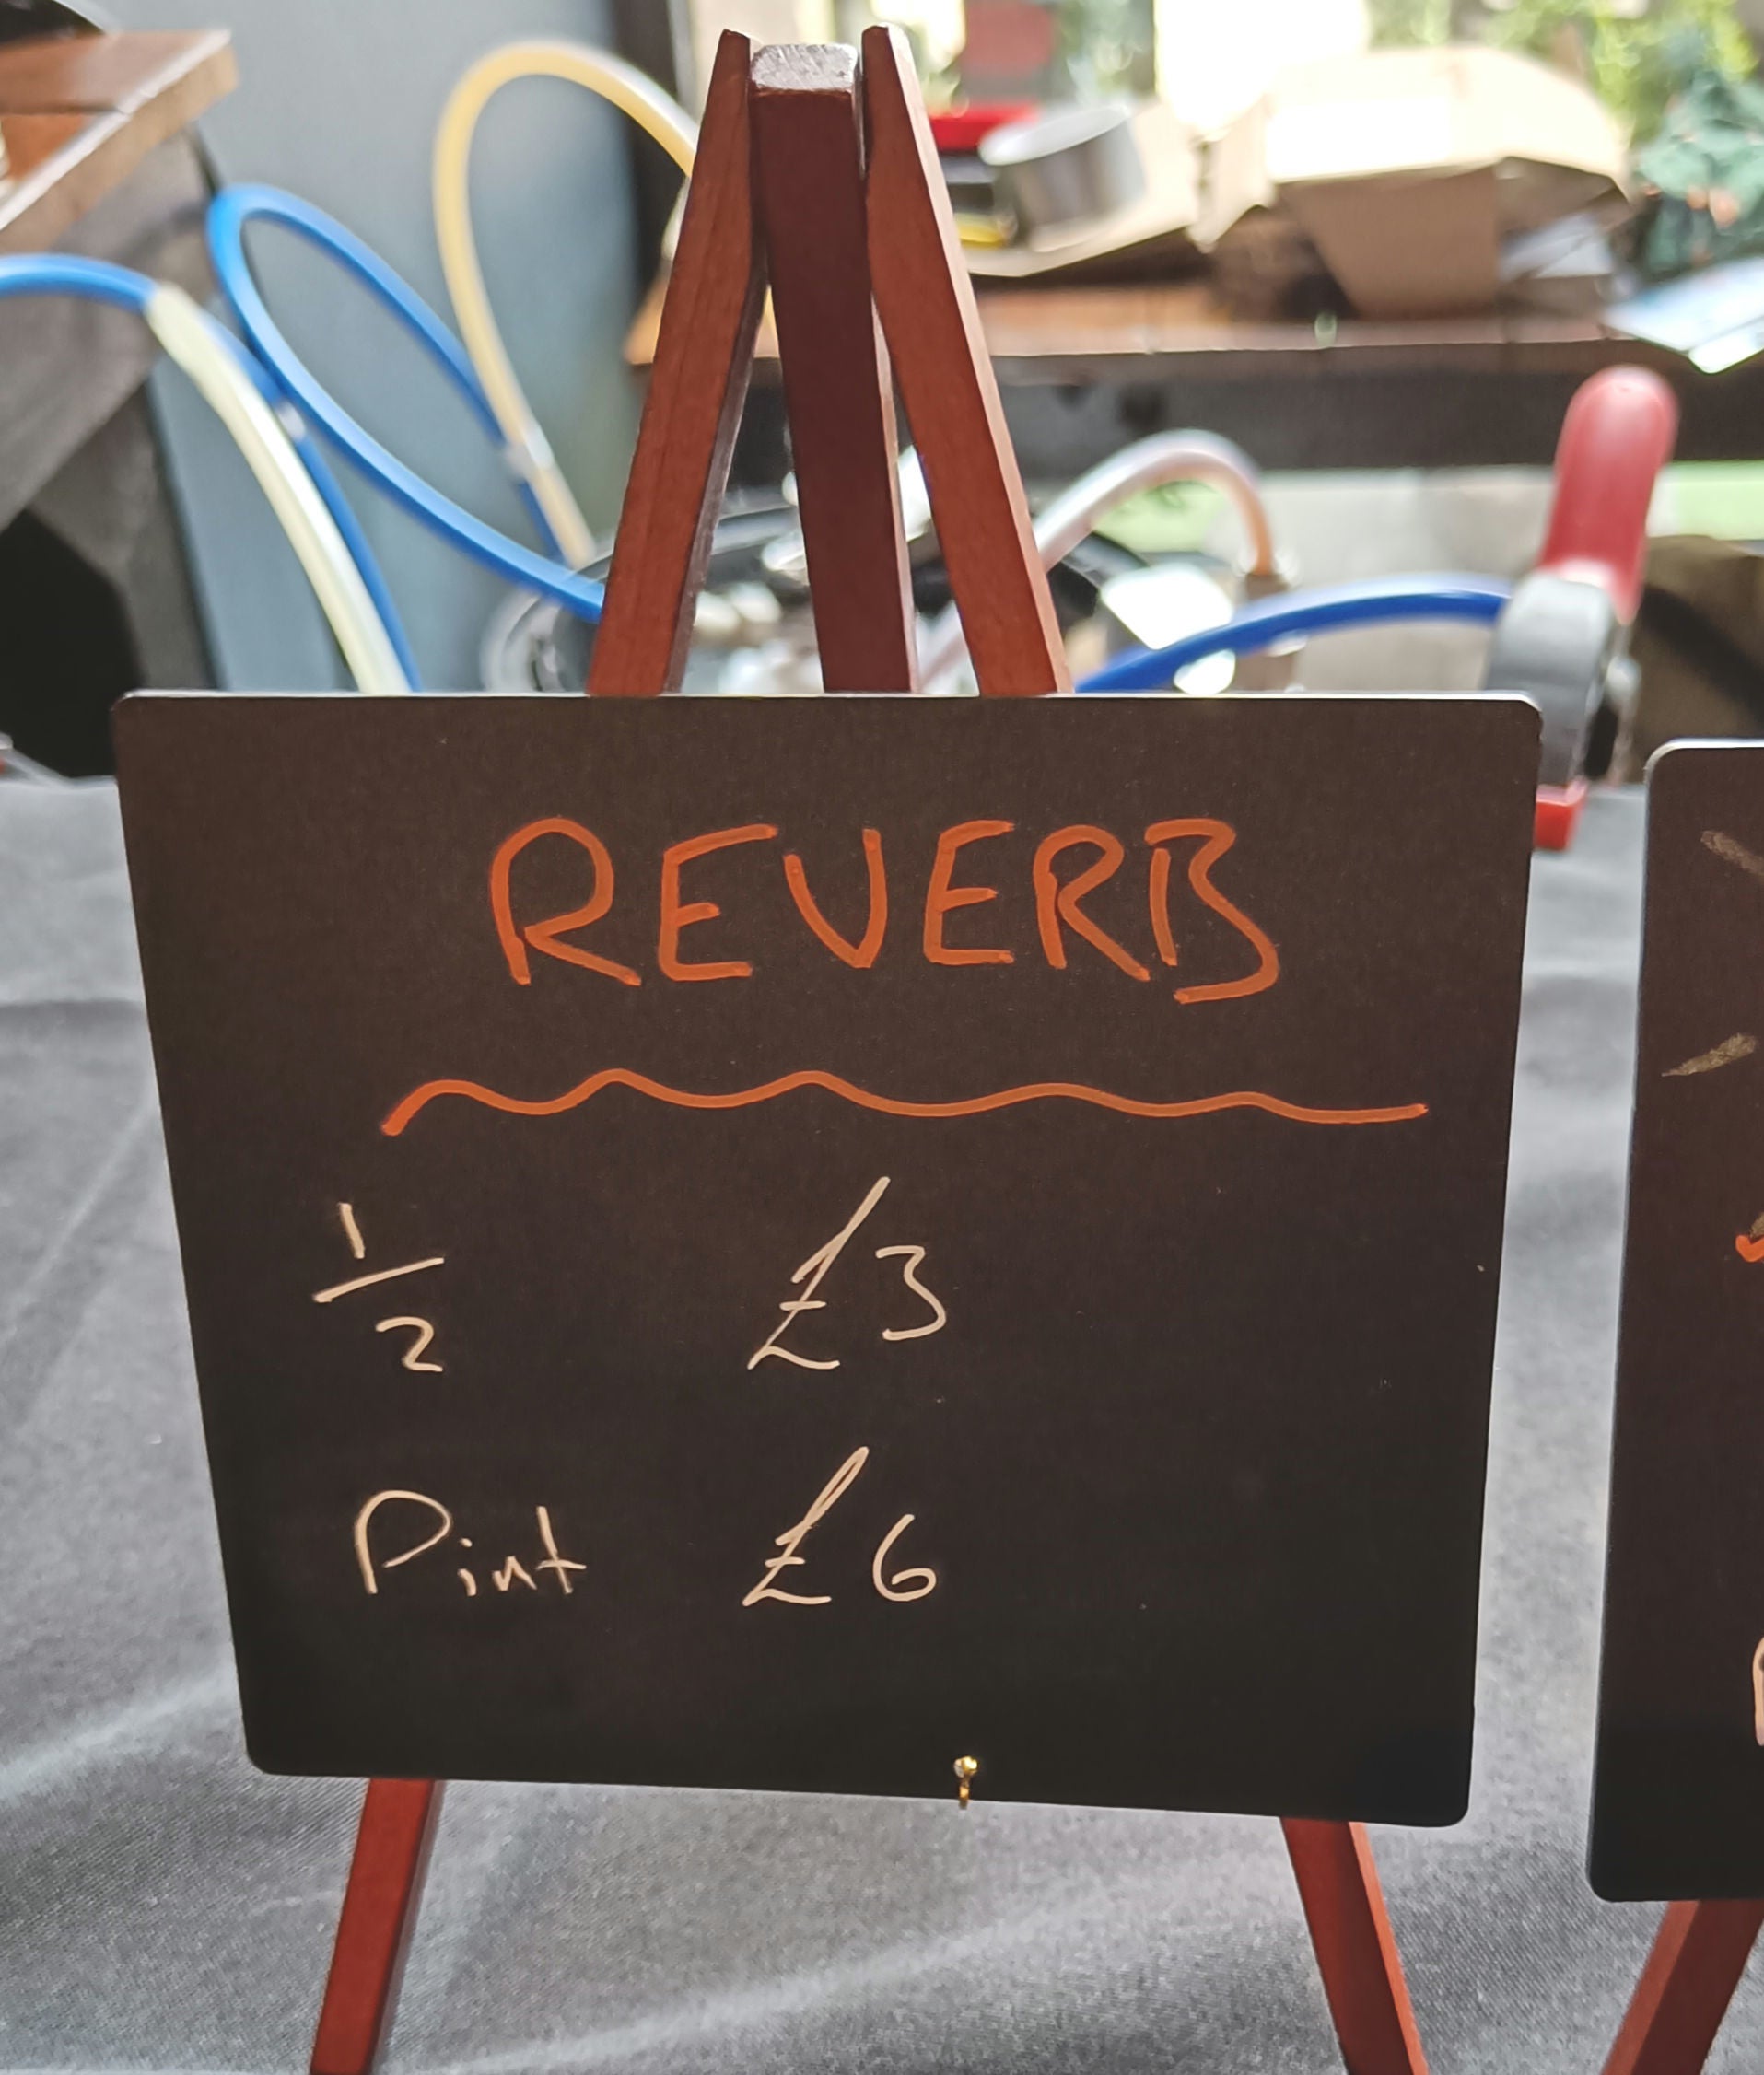 REVERB
1/2 £3
Pint £6